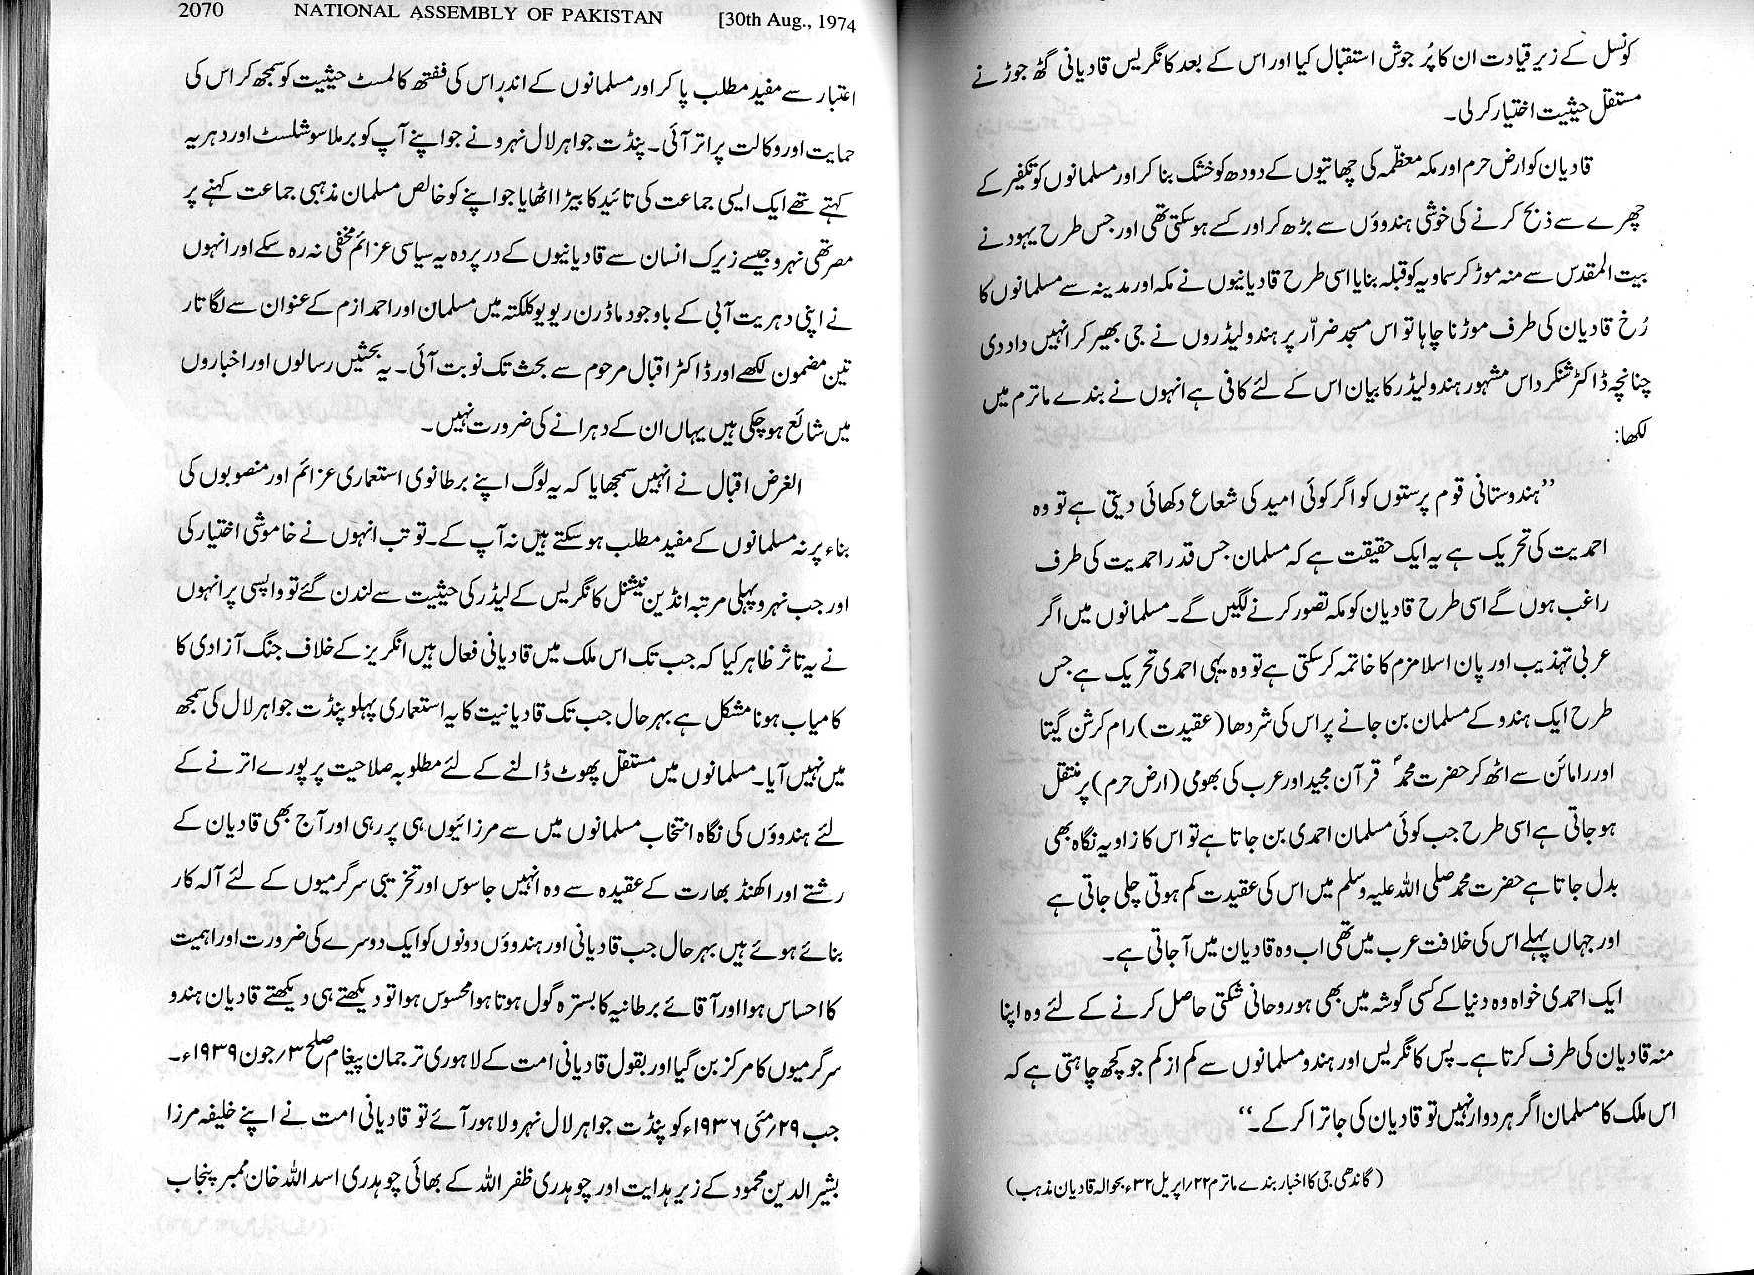 2070 NATIONAL ASSEMBLY OF PAKISTAN [30th Aug., 1974
اعتبار سے مفید مطلب پا کر اور مسلمانوں کے اندر اس کی ففتھ کالمسٹ حیثیت کو سمجھ کر اس کی
حمایت اور وکالت پر اتر آئی۔ پنڈت جواہر لال نہرو نے جو اپنے آپ کو برملا سوشلسٹ اور دہریہ
کہتے تھے ایک ایسی جماعت کی تائید کا بیڑا اٹھایا جو اپنے کو خالص مسلمان مذہبی جماعت کہنے پر
مصر تھی نہرو جیسے زیرک انسان سے قادیانیوں کے در پردہ یہ سیاسی عزائم مخفی نہ رہ سکے اور انہوں
نے اپنی دہریت آبی کے باوجود ماڈرن ریویو کلکتہ میں مسلمان اور احمد ازم کے عنوان سے لگا تار
تین مضمون لکھے اور ڈاکٹر اقبال مرحوم سے بحث تک نوبت آئی۔ یہ بحثیں رسالوں اور اخباروں
میں شائع ہو چکی ہیں یہاں ان کے دہرانے کی ضرورت نہیں۔
الغرض اقبال نے انہیں سمجھایا کہ یہ لوگ اپنے برطانوی استعماری عزائم اور منصوبوں کی
بناء پر نہ مسلمانوں کے مفید مطلب ہو سکتے ہیں نہ آپ کے۔ تو تب انہوں نے خاموشی اختیار کی
اور جب نہرو پہلی مرتبہ انڈین نیشنل کانگریس کے لیڈر کی حیثیت سے لندن گئے تو واپسی پر انہوں
نے یہ تاثر ظاہر کیا کہ جب تک اس ملک میں قادیانی فعال ہیں انگریز کے خلاف جنگ آزادی کا
کامیاب ہونا مشکل ہے بہر حال جب تک قادیانیت کا یہ استعماری پہلو پنڈت جواہر لال کی سمجھ
میں نہیں آیا۔ مسلمانوں میں مستقل پھوٹ ڈالنے کے لئے مطلوبہ صلاحیت پر پورے اترنے کے
لئے ہندوؤں کی نگاہ انتخاب مسلمانوں میں سے مرزائیوں ہی پر رہی اور آج بھی قادیان کے
رشتے اور اکھنڈ بھارت کے عقیدہ سے وہ انہیں جاسوس اور تخریبی سرگرمیوں کے لئے آلہ کار
بنائے ہوئے ہیں بہر حال جب قادیانی اور ہندوؤں دونوں کو ایک دوسرے کی ضرورت اور اہمیت
کا احساس ہوا اور آقائے برطانیہ کا بسترہ گول ہوتا ہوا محسوس ہوا تو دیکھتے ہی دیکھتے قادیان ہندو
سرگرمیوں کا مرکز بن گیا اور بقول قادیانی امت کے لاہوری ترجمان پیغام صلح ۳؍جون ۱۹۳۹ء۔
جب ۲۹؍مئی ۱۹۳۶ء کو پنڈت جواہر لال نہرو لاہور آئے تو قادیانی امت نے اپنے خلیفہ مرزا
بشیر الدین محمود کے زیر ہدایت اور چوہدری ظفر اللہ کے بھائی چوہدری اسد اللہ خان ممبر پنجاب
کونسل کے زیر قیادت ان کا پُر جوش استقبال کیا اور اس کے بعد کانگریس قادیانی گٹھ جوڑ نے
مستقل حیثیت اختیار کر لی۔
قادیان کو ارض حرم اور مکہ معظّمہ کی چھاتیوں کے دودھ کو خشک بنا کر اور مسلمانوں کو تکفیر کے
چھرے سے ذبح کرنے کی خوشی ہندوؤں سے بڑھ کر اور کسے ہو سکتی تھی اور جس طرح یہود نے
بیت المقدس سے منہ موڑ کر سماویہ کو قبلہ بنایا اسی طرح قادیانیوں نے مکہ اور مدینہ سے مسلمانوں کا
رُخ قادیان کی طرف موڑنا چاہا تو اس مسجد ضرّار پر ہندو لیڈروں نے جی بھر کر انہیں داد دی
چنانچہ ڈاکٹر شنکر داس مشہور ہندو لیڈر کا بیان اس کے لئے کافی ہے انہوں نے بندے ماترم میں
لکھا:
”ہندوستانی قوم پرستوں کو اگر کوئی امید کی شعاع دکھائی دیتی ہے تو وہ
احمدیت کی تحریک ہے یہ ایک حقیقت ہے کہ مسلمان جس قدر احمدیت کی طرف
راغب ہوں گے اسی طرح قادیان کو مکہ تصور کرنے لگیں گے۔ مسلمانوں میں اگر
عربی تہذیب اور پان اسلامزم کا خاتمہ کر سکتی ہے تو وہ یہی احمدی تحریک ہے جس
طرح ایک ہندو کے مسلمان بن جانے پر اس کی شردھا (عقیدت) رام کرشن گیتا
اور رامائن سے اٹھ کر حضرت محمدؐ قرآن مجید اور عرب کی بھومی (ارض حرم) پر منتقل
ہو جاتی ہے اسی طرح جب کوئی مسلمان احمدی بن جاتا ہے تو اس کا زاویہ نگاہ بھی
بدل جاتا ہے حضرت محمد صلی اللہ علیہ وسلم میں اس کی عقیدت کم ہوتی چلی جاتی ہے
اور جہاں پہلے اس کی خلافت عرب میں تھی اب وہ قادیان میں آ جاتی ہے۔
ایک احمدی خواہ وہ دنیا کے کسی گوشہ میں بھی ہو روحانی شکتی حاصل کرنے کے لئے وہ اپنا
منہ قادیان کی طرف کرتا ہے۔ پس کانگریس اور ہندو مسلمانوں سے کم از کم جو کچھ چاہتی ہے کہ
اس ملک کا مسلمان اگر ہردوار نہیں تو قادیان کی جاترا کر کے۔“
(گاندھی جی کا اخبار بندے ماترم ۲۲؍اپریل ۳۲ء بحوالہ قادیان مذہب)